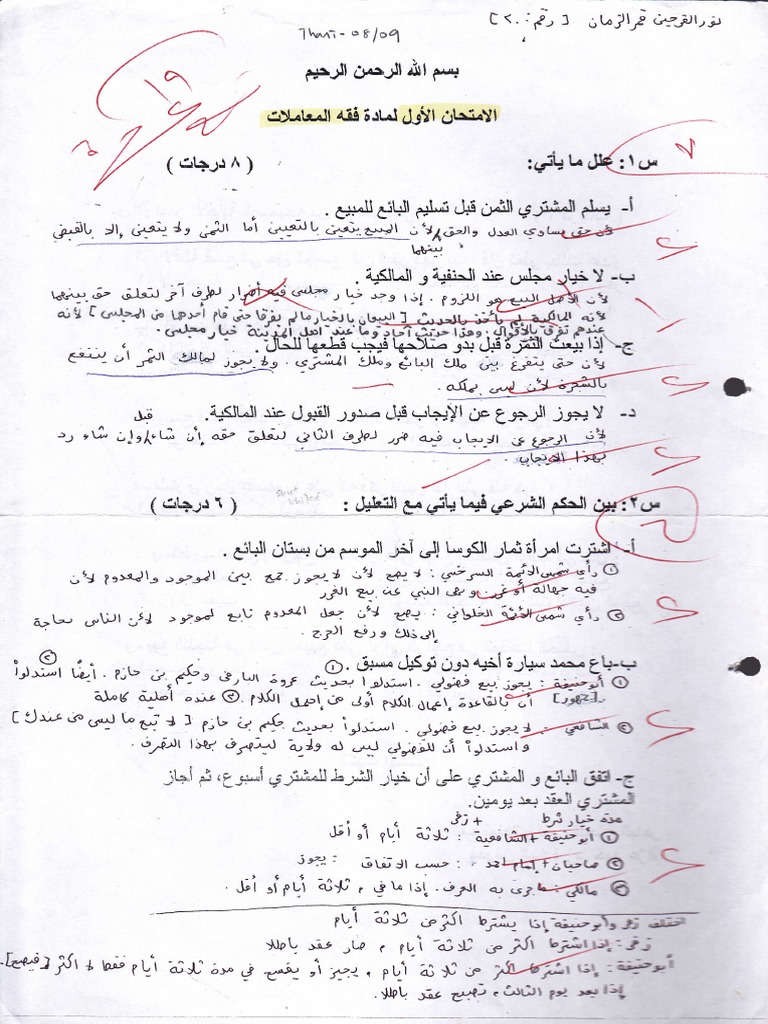 نور القرحين قمر الزمان [رقم: ٢٠]
Thani - 08/09
بسم الله الرحمن الرحيم
١٩
الامتحان الأول لمادة فقه المعاملات
س١: علل ما يأتي: ( ٨ درجات )
أ- يسلم المشتري الثمن قبل تسليم البائع للمبيع .
لأن حتى يساوي العدل والحق لأن المبيع يتعين بالتعيين أما الثمن ولا يتعين إلا بالقبض
بينهما
ب- لا خيار مجلس عند الحنفية و المالكية .
لأن الأصل البيع هو اللزوم . إذا وجد خيار مجلس فيه أضرار لطرف آخر لتعلق حق بينهما
لأنه المالكية لم يأخذ بالحديث [البيعان بالخيار ما لم يفرقا حتى قام أحدها من المجلس] لأنه
عندهم تفرق بالأقوال . وهذا حديث آحاد وما عند أهل المدينة خيار مجلس .
ج- إذا بيعت الثمرة قبل بدو صلاحها فيجب قطعها للحال .
لأن حتى يتفرغ بين ملك البائع وملك المشتري . ولا يجوز لمالك الثمر أن ينتفع
بالشجرة لأن ليس بملكه .
د- لا يجوز الرجوع عن الإيجاب قبل صدور القبول عند المالكية.
لأن الرجوع عن الايجاب فيه ضرر لطرف الثاني لتعلق حقه إن شاء قبل وإن شاء رد
بهذا الايجاب .
س٢: بين الحكم الشرعي فيما يأتي مع التعليل : ( ٦ درجات )
أ- اشترت امرأة ثمار الكوسا إلى آخر الموسم من بستان البائع .
① رأي شمس الأئمة السرخسي : لا يصح لأن لا يجوز جمع بين الموجود والمعدوم لأن
فيه جهالة أو غرر . ونهى النبي عن بيع الغرر
② رأي شمس الأئمة الحلواني : يصح لأن جعل المعدوم تابع لموجود لأن الناس بحاجة
إلى ذلك ورفع الحرج .
ب- باع محمد سيارة أخيه دون توكيل مسبق .
① أبو حنيفة : يجوز بيع فضولي . استدلوا بحديث ① عروة البارقي وحكيم بن حازم . أيضًا استدلوا ②
[جمهور] أن بالقاعدة إعمال الكلام أولى من إهمال الكلام . ③ عنده أهلية كاملة
② الشافعي : لا يجوز بيع فضولي . استدلوا بحديث حكيم بن حازم [لا تبع ما ليس عندك]
واستدلوا أن للفضولي ليس له ولاية ليتصرف بهذا التصرف .
ج- اتفق البائع و المشتري على أن خيار الشرط للمشتري أسبوع، ثم أجاز
المشتري العقد بعد يومين.
مدة خيار شرط + زفر
① أبو حنيفة + الشافعية : ثلاثة أيام أو أقل
② صاحبان + إمام احمد : حسب الاتفاق : يجوز
③ مالكي : ما جرى به العرف . إذا ما في ، ثلاثة أيام أو أقل .
اختلف زفر وأبو حنيفة إذا يشترط اكثر من ثلاثة أيام
زفر : إذا اشترط أكثر من ثلاثة أيام ، صار عقد باطلا
أبو حنيفة : إذا اشترط أكثر من ثلاثة أيام ، يجيز أو يفسخ في مدة ثلاثة أيام فقط لا اكثر [فيصح].
إذا بعد يوم الثالث ، تصبح عقد باطلا .